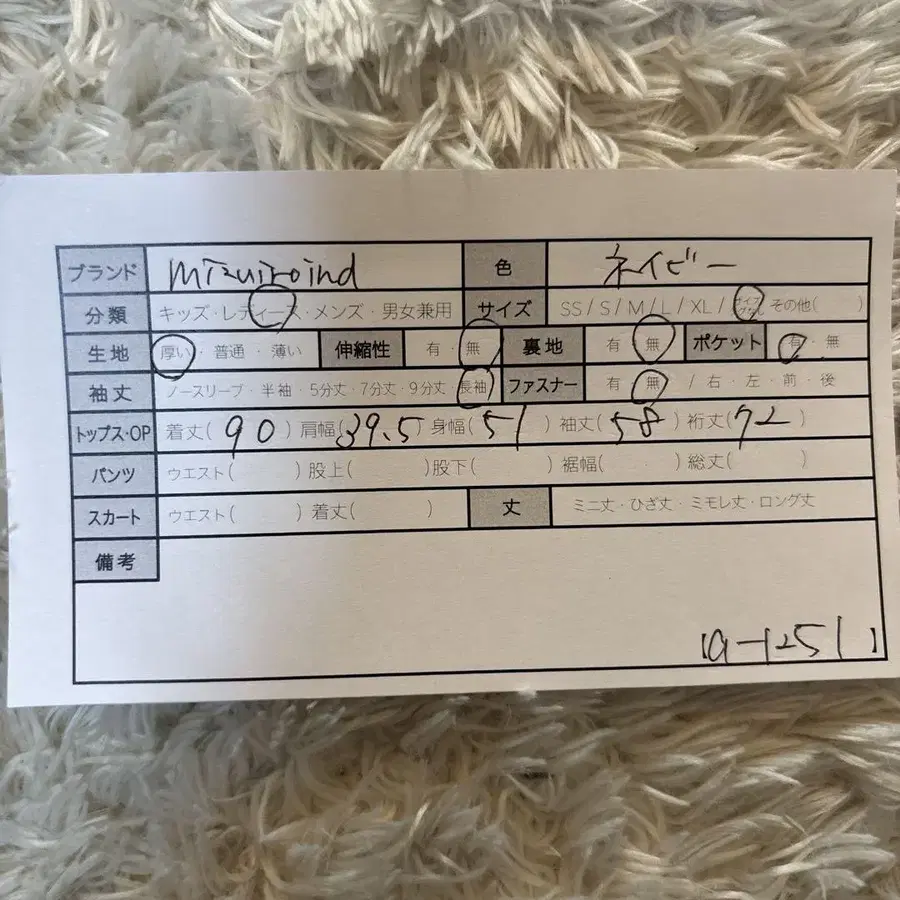 ブランド mizuiroind 色 ネイビー
分類 キッズ・レディース・メンズ・男女兼用 サイズ SS / S / M / L / XL / その他( )
生地 厚い・普通・薄い 伸縮性 有・無 裏地 有・無 ポケット 有・無
袖丈 ノースリーブ・半袖・5分丈・7分丈・9分丈・長袖 ファスナー 有・無 / 右・左・前・後
トップス・OP 着丈( 90 ) 肩幅( 39.5 ) 身幅( 51 ) 袖丈( 58 ) 裄丈( 72 )
パンツ ウエスト( ) 股上( ) 股下( ) 裾幅( ) 総丈( )
スカート ウエスト( ) 着丈( ) 丈 ミニ丈・ひざ丈・ミモレ丈・ロング丈
備考
【a-1251】